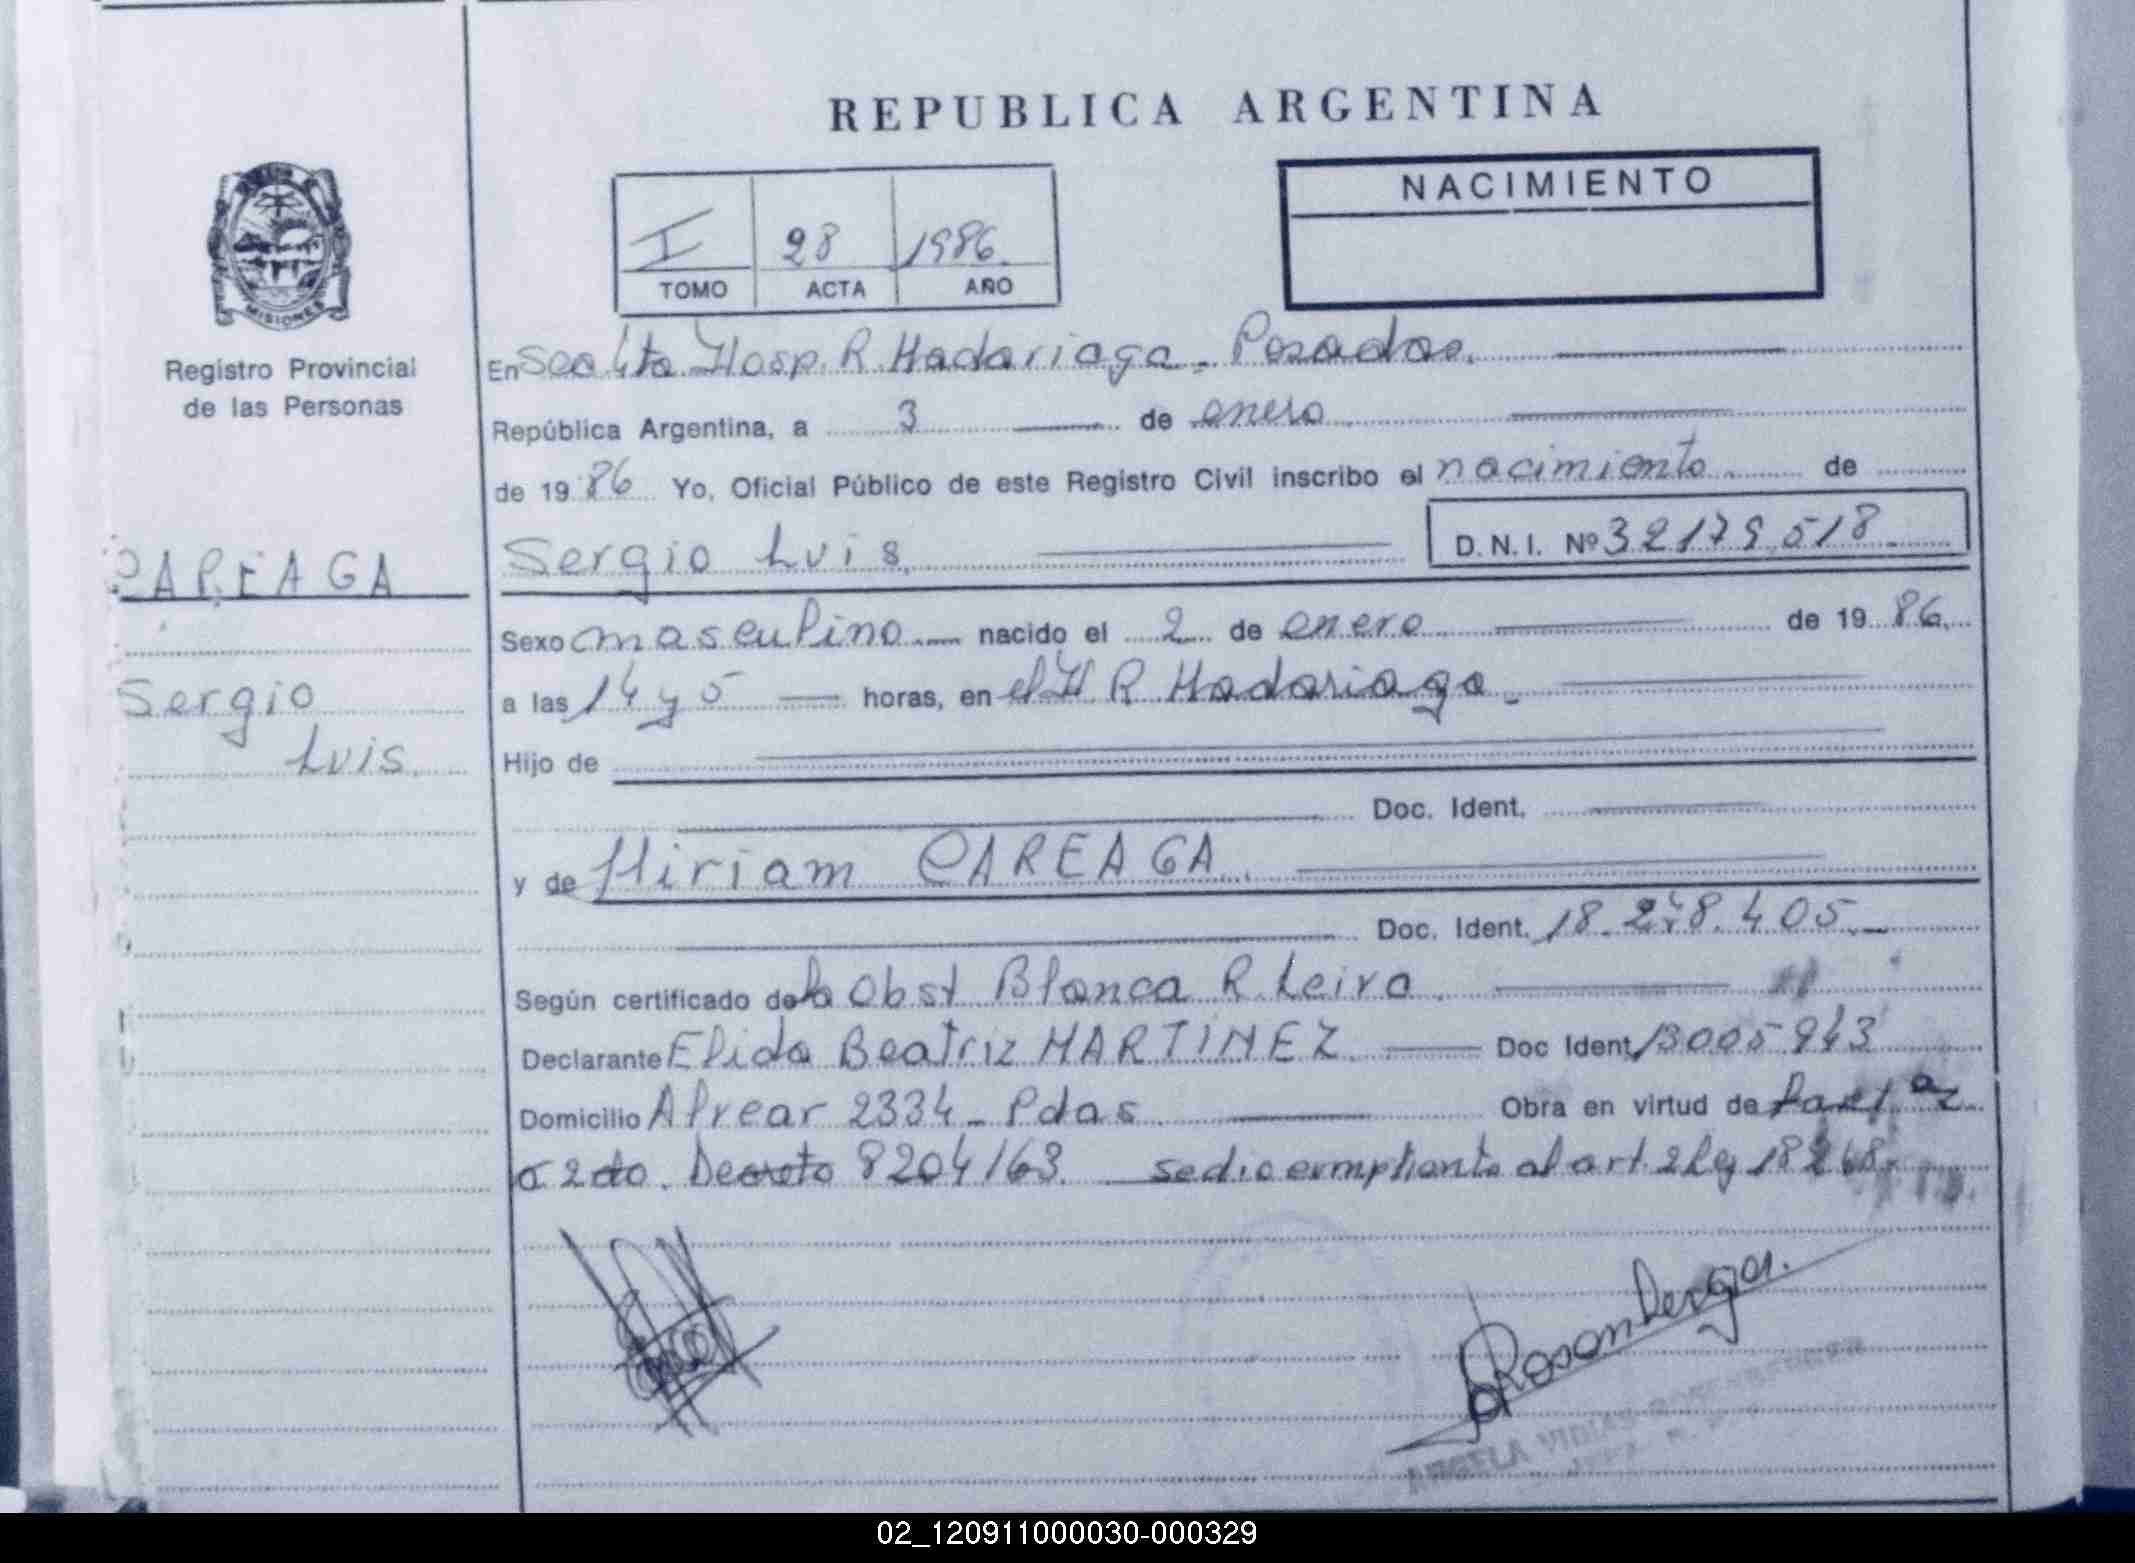 REPUBLICA ARGENTINA
NACIMIENTO
I 28 1986
TOMO ACTA AÑO
MISIONES
Registro Provincial
de las Personas
CAREAGA
Sergio
Luis
En Sec 4ta Hosp. R. Madariaga - Posadas.
República Argentina, a 3 de enero
de 1986 Yo, Oficial Público de este Registro Civil inscribo el nacimiento de
Sergio Luis. D.N.I. Nº 32179.518
Sexo masculino nacido el 2 de enero de 1986.
a las 14 y 5 horas, en el H R Madariaga.
Hijo de
Doc. Ident.
y de Miriam CAREAGA.
Doc. Ident. 18.278.405.
Según certificado de la Obst Blanca R. Leiva
Declarante Elida Beatriz MARTINEZ Doc Ident 13005943
Domicilio Alvear 2334 - Pdas Obra en virtud de
2do. Decreto 8204/63. se dio cumplimiento al art. 2 Ley 18248.
Rosenberger
ANGELA ROSENBERGER
02_120911000030-000329